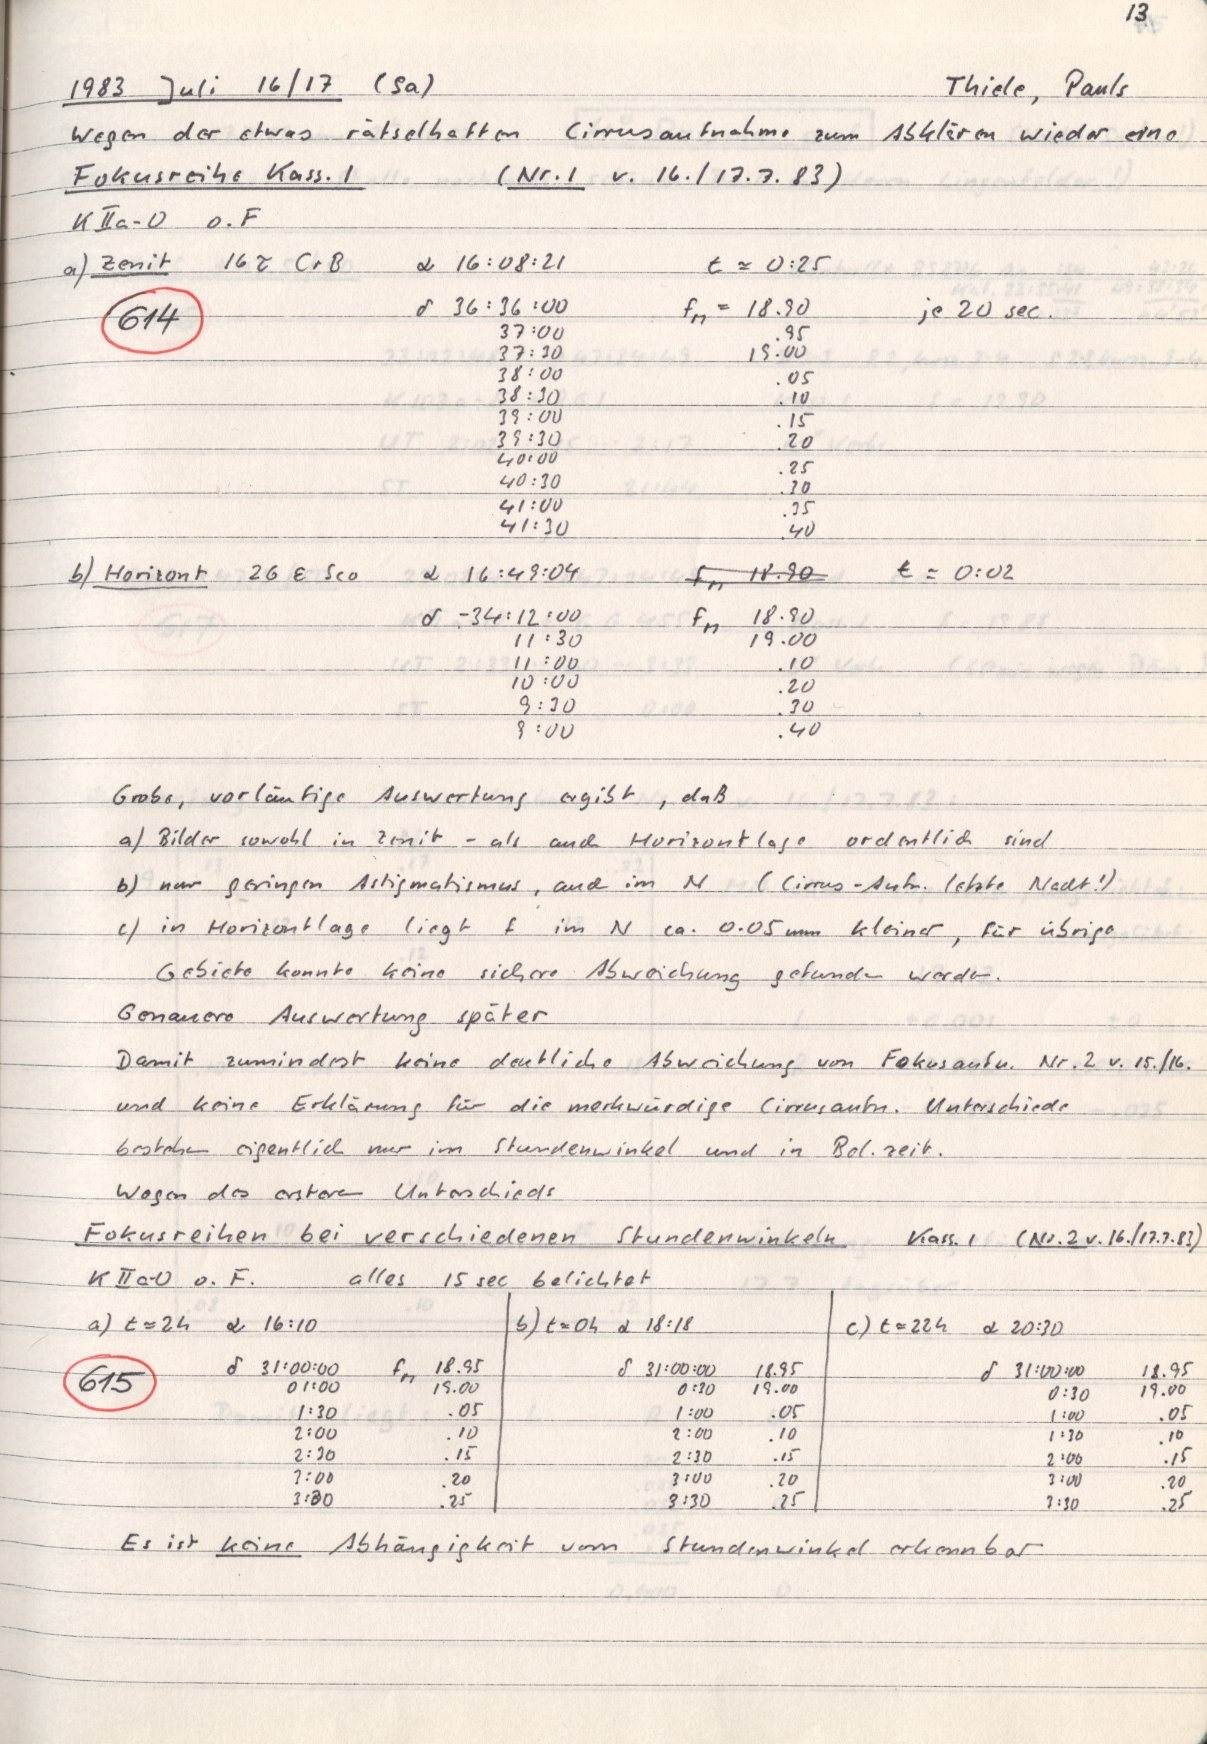 13
1983 Juli 16/17 (Sa) Thiele, Pauls
Wegen der etwas rätselhaften Cirrusaufnahme zum Abklären wieder eine
Fokusreihe Kass. 1 (Nr. 1 v. 16./17.7.83)
K IIa-O o. F
a) Zenit 16 τ CrB α 16:08:21 t ≃ 0:25
614 δ 36:36:00 fM = 18.90 je 20 sec.
37:00 .95
37:30 19.00
38:00 .05
38:30 .10
39:00 .15
39:30 .20
40:00 .25
40:30 .30
41:00 .35
41:30 .40
b) Horizont 26 ε Sco α 16:49:04 fM 18.90 t = 0:02
δ -34:12:00 fM 18.90
11:30 19.00
11:00 .10
10:00 .20
9:30 .30
9:00 .40
Grobe, vorläufige Auswertung ergibt, daß
a) Bilder sowohl in Zenit - als auch Horizontlage ordentlich sind
b) nur geringen Astigmatismus, auch im N (Cirrus-Aufn. letzte Nacht!)
c) in Horizontlage liegt f im N ca. 0.05 mm kleiner, für übrige
Gebiete konnte keine sichere Abweichung gefunden werden.
Genauere Auswertung später
Damit zumindest keine deutliche Abweichung von Fokusaufn. Nr. 2 v. 15./16.
und keine Erklärung für die merkwürdige Cirrusaufn. Unterschiede
bestehen eigentlich nur im Stundenwinkel und in Bel. zeit.
Wegen des ersteren Unterschieds
Fokusreihen bei verschiedenen Stundenwinkeln Kass. 1 (Nr. 2 v. 16./17.7.83)
K IIa-O o. F. alles 15 sec belichtet
a) t = 2h α 16:10 b) t = 0h α 18:18 c) t = 22h α 20:30
615 δ 31:00:00 fM 18.95 δ 31:00:00 18.95 δ 31:00:00 18.95
01:00 19.00 0:30 19.00 0:30 19.00
1:30 .05 1:00 .05 1:00 .05
2:00 .10 2:00 .10 1:30 .10
2:30 .15 2:30 .15 2:00 .15
3:00 .20 3:00 .20 3:00 .20
3:30 .25 3:30 .25 3:30 .25
Es ist keine Abhängigkeit vom Stundenwinkel erkennbar